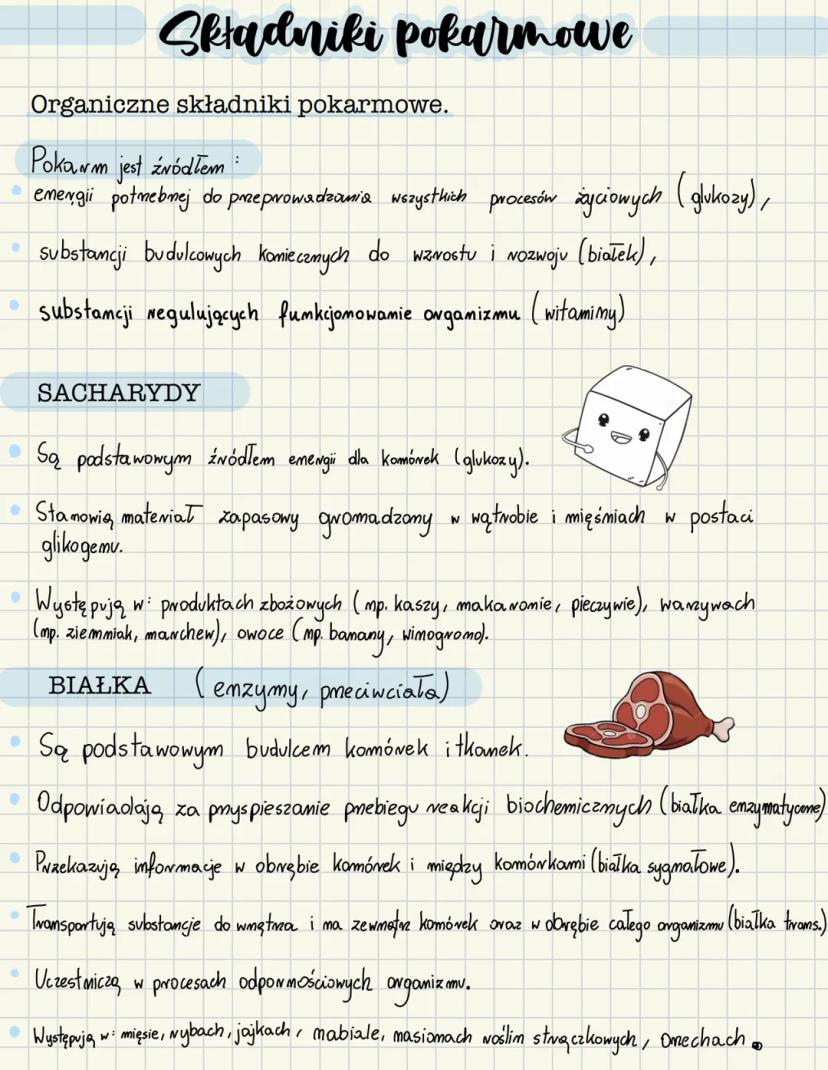 Składniki pokarmowe
Organiczne składniki pokarmowe.
Pokarm jest źródłem :
energii potrzebnej do przeprowadzania wszystkich procesów życiowych (glukozy),
substancji budulcowych koniecznych do wzrostu i rozwoju (białek),
substancji regulujących funkcjonowanie organizmu (witaminy)
SACHARYDY
Są podstawowym źródłem energii dla komórek (glukozy).
Stanowią materiał zapasowy gromadzony w wątrobie i mięśniach w postaci
glikogenu.
Występują w: produktach zbożowych (np. kaszy, makaronie, pieczywie), warzywach
(np. ziemniak, marchew), owoce (np. banany, winogrono).
BIAŁKA (enzymy, przeciwciała)
Są podstawowym budulcem komórek i tkanek.
Odpowiadają za przyspieszanie przebiegu reakcji biochemicznych (białka enzymatyczne)
Przekazują informacje w obrębie komórek i między komórkami (białka sygnałowe).
Transportują substancje do wnętrza i na zewnątrz komórek oraz w obrębie całego organizmu (białka trans.)
Uczestniczą w procesach odpornościowych organizmu.
Występują w: mięsie, rybach, jajkach, nabiale, nasionach roślin strączkowych, orzechach.